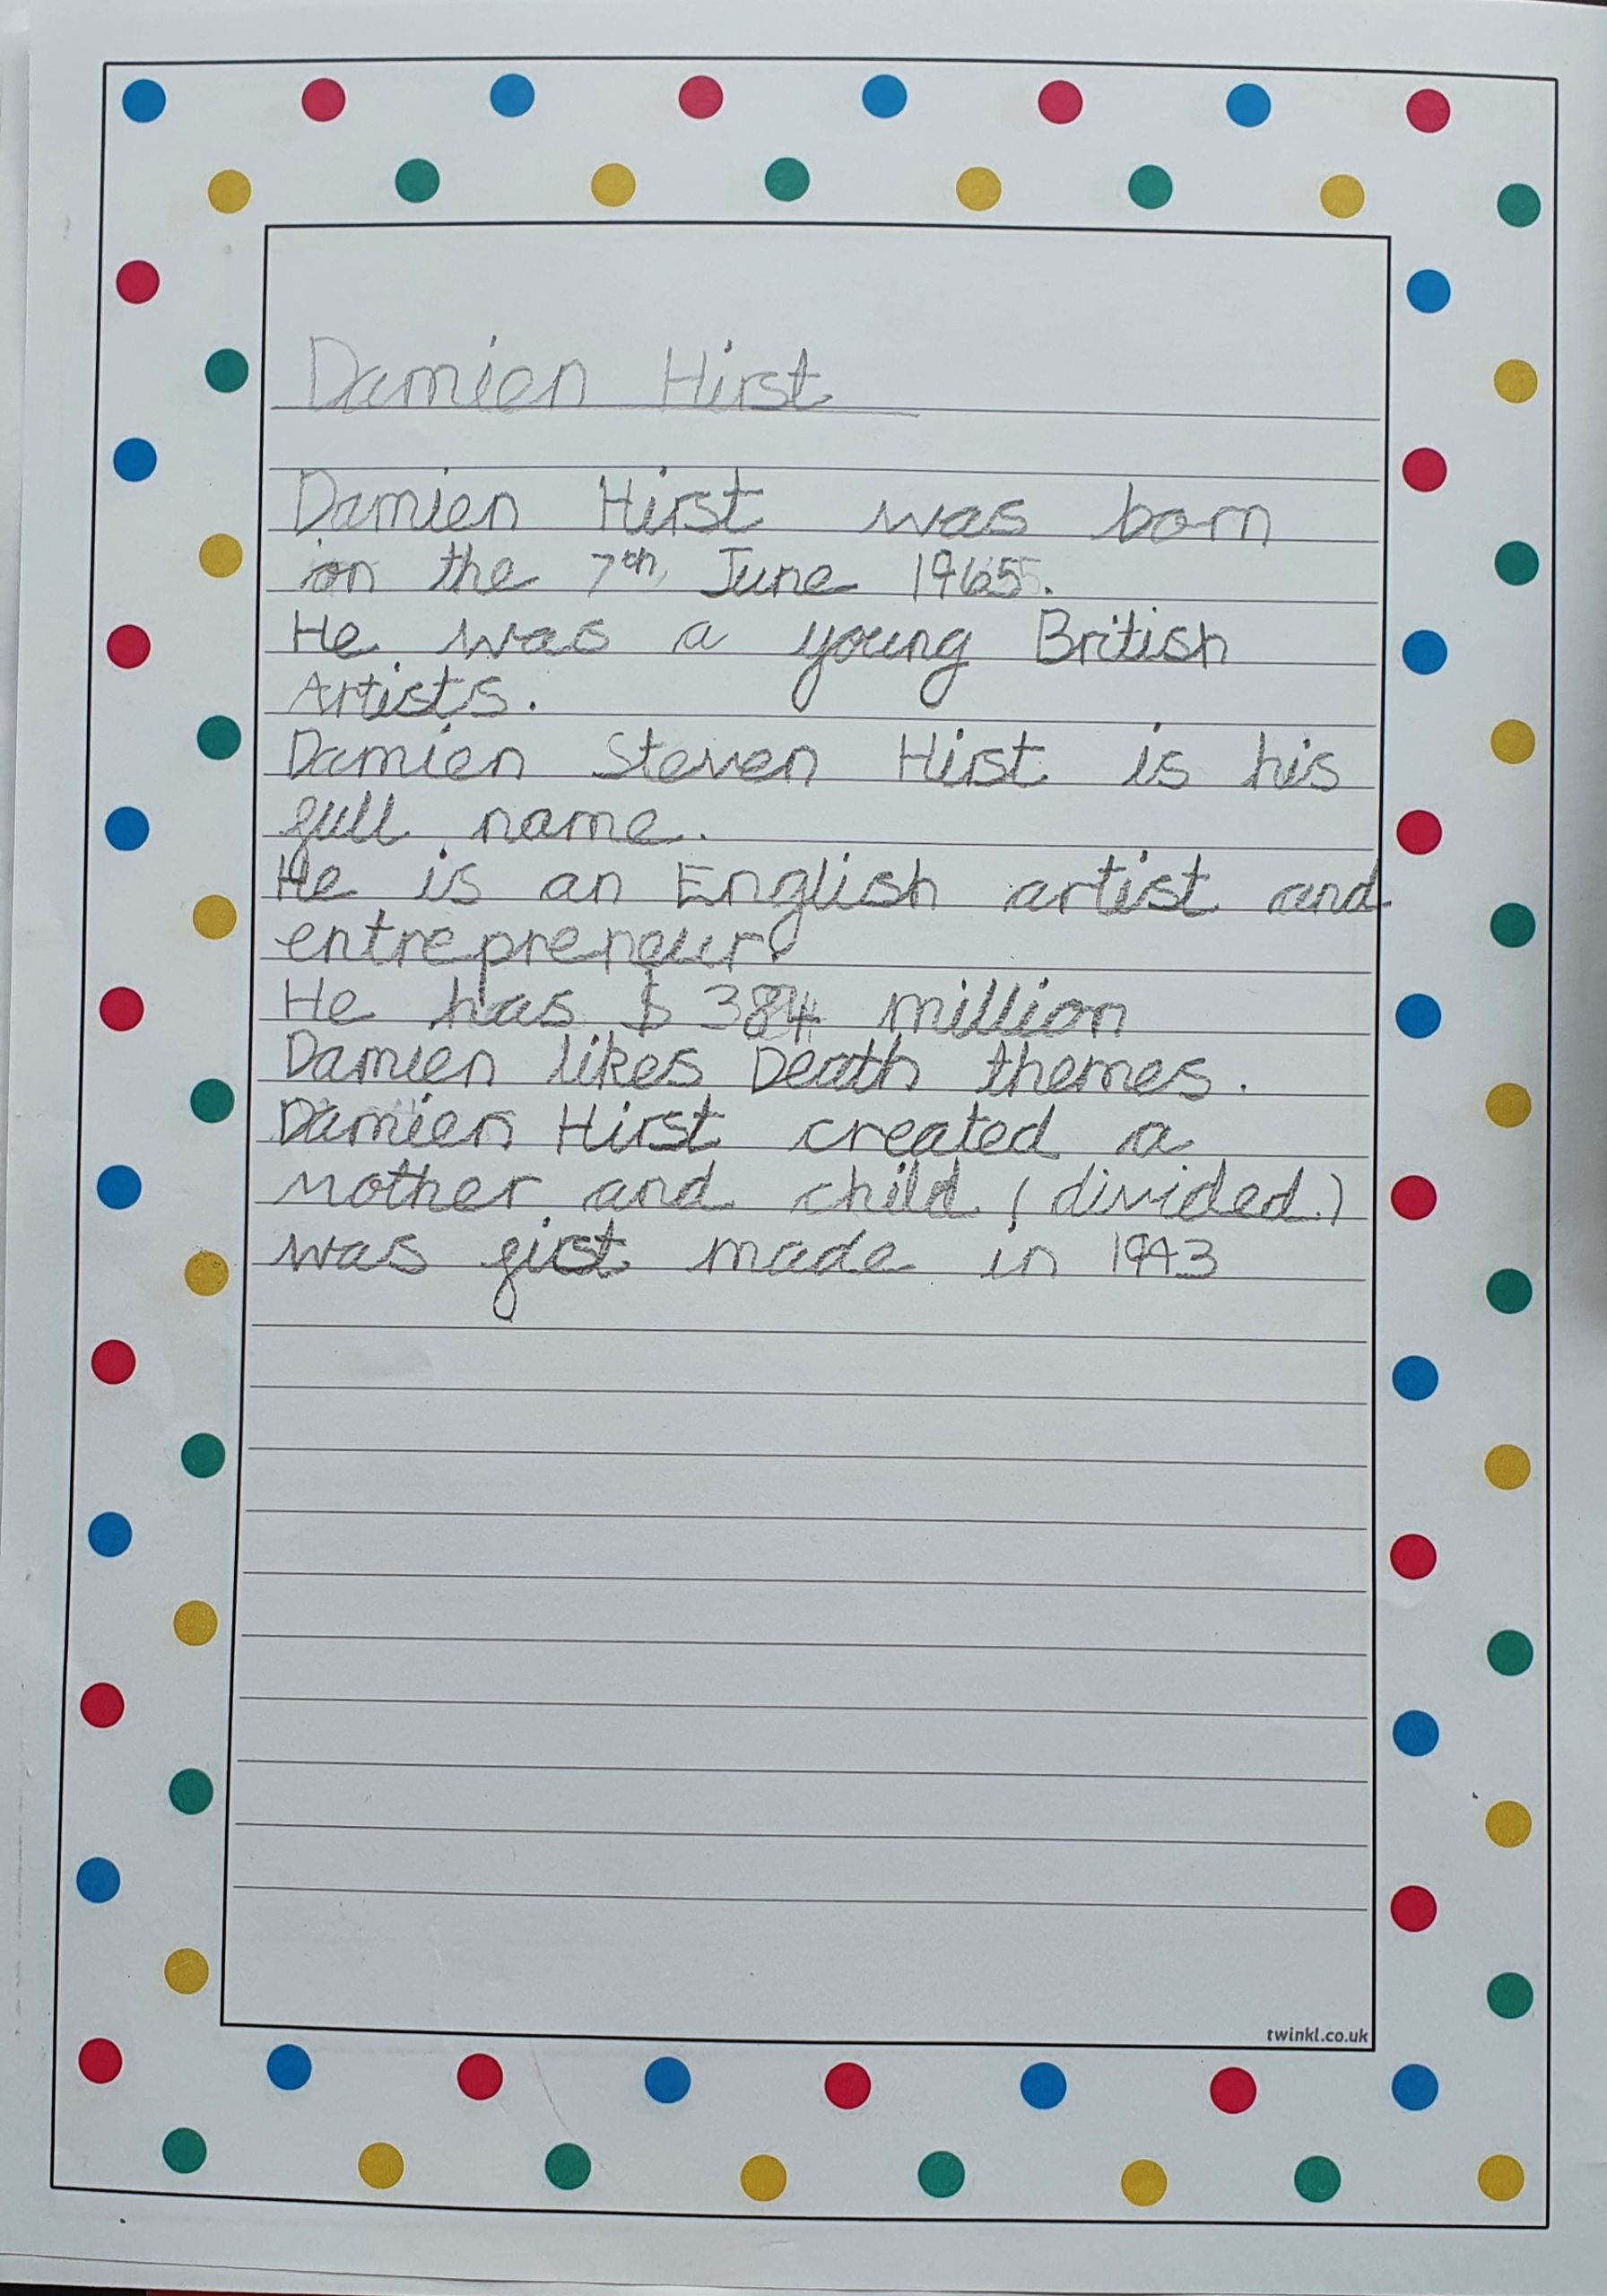 Damien Hirst
Damien Hirst was born
on the 7th June 1965.
He was a young British
Artists.
Damien Steven Hirst is his
full name.
He is an English artist and
entrepreneur
He has $384 million
Damien likes Death themes.
Damien Hirst created a
mother and child (divided)
was first made in 1993
twinkl.co.uk